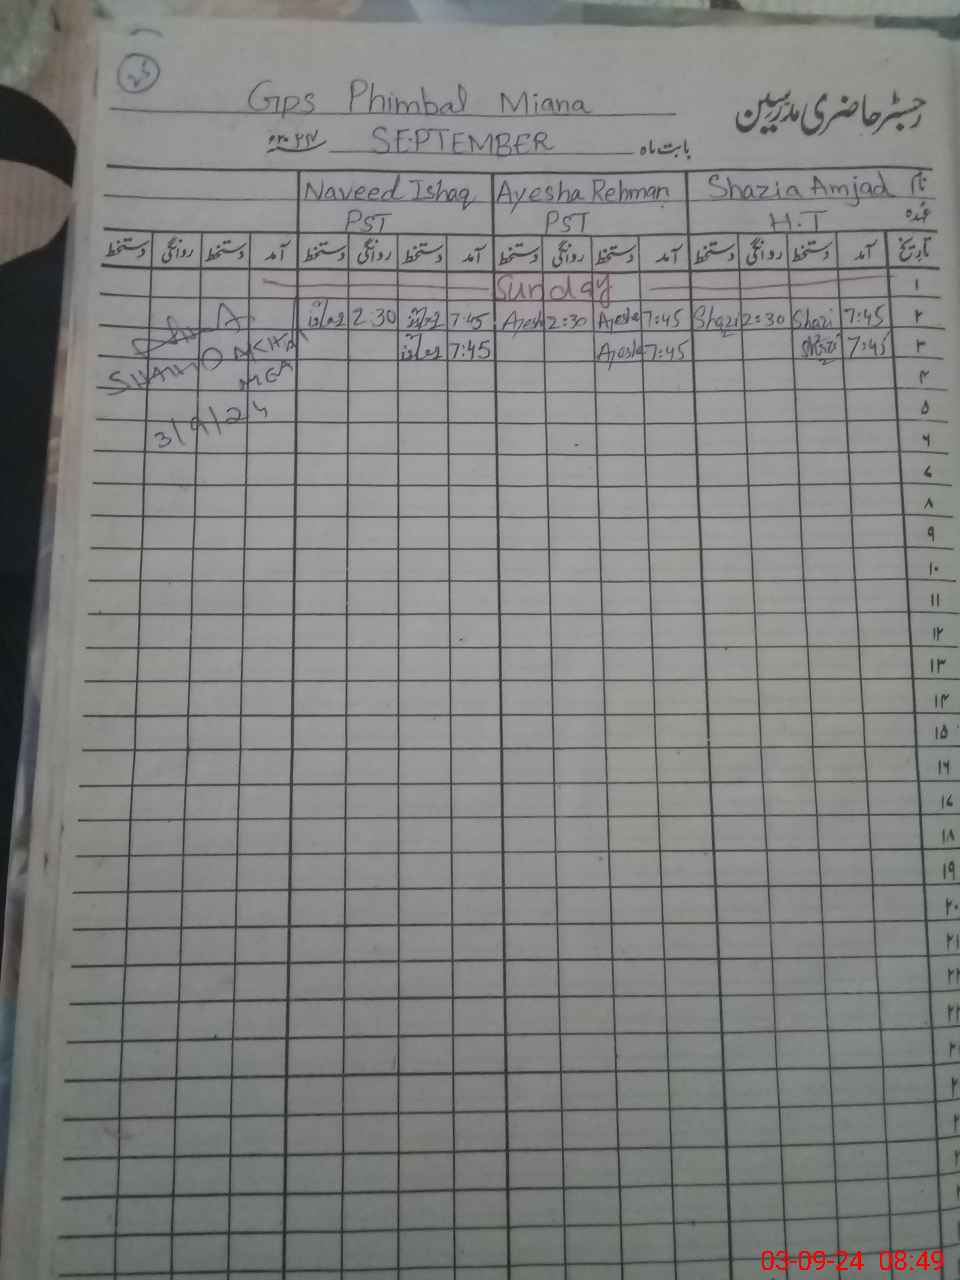 Gps Phimbal Miana
رجسٹر حاضری مدرسین
بابت ماہ SEPTEMBER
نام Shazia Amjad Ayesha Rehman Naveed Ishaq
عہدہ H.T PST PST
تاریخ آمد دستخط روانگی دستخط آمد دستخط روانگی دستخط آمد دستخط روانگی دستخط آمد دستخط روانگی دستخط
۱ Sunday
۲ 7:45 Shazi 2:30 Shazi 7:45 Ayesha 2:30 Ayesh 7:45 2:30
۳ 7:45 Shazi 7:45 Ayesha 7:45
۴
۵
۶
۷
۸
۹
۱۰
۱۱
۱۲
۱۳
۱۴
۱۵
۱۶
۱۷
۱۸
۱۹
۲۰
۲۱
۲۲
MEA
3/9/24
03-09-24 08:49